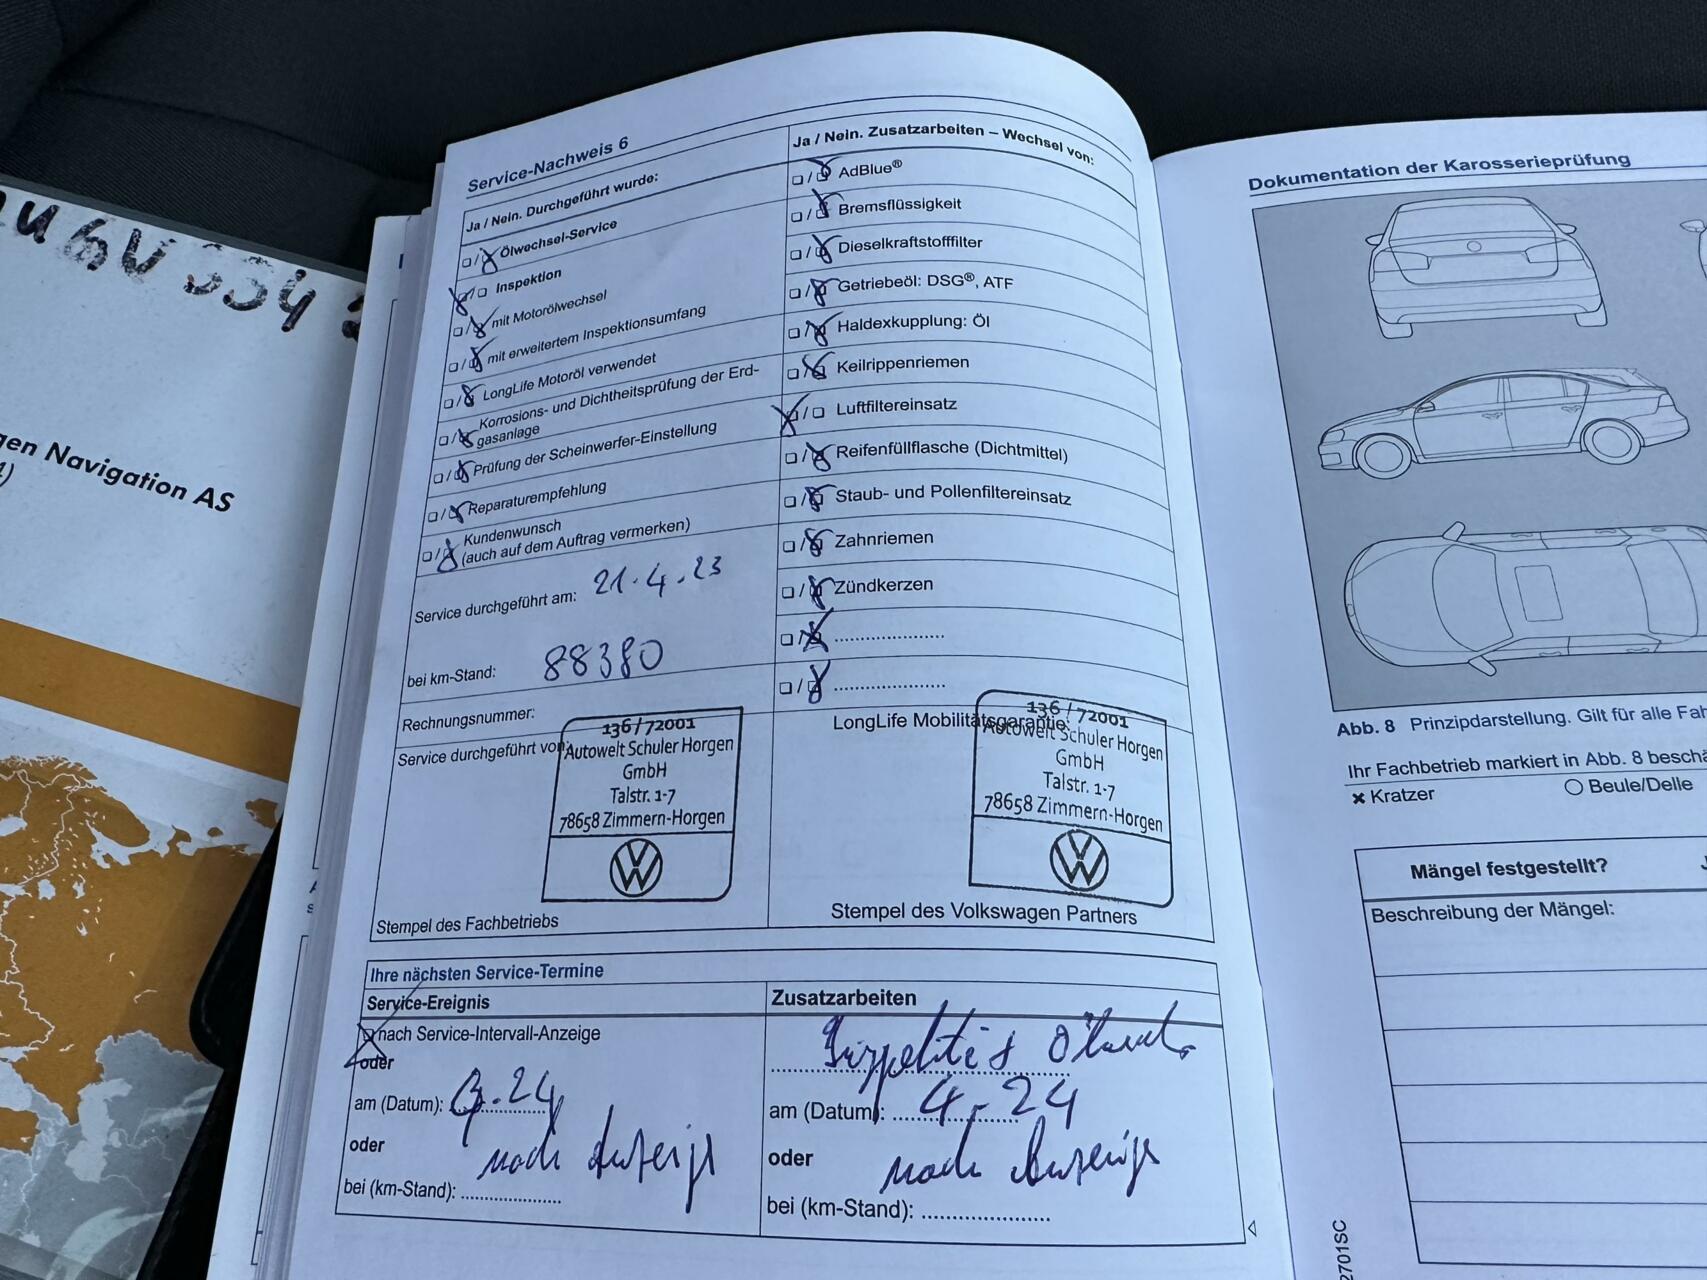 u 6V 334
gen Navigation AS
Service-Nachweis 6
Ja / Nein. Durchgeführt wurde:
Ölwechsel-Service
Inspektion
mit Motorölwechsel
mit erweitertem Inspektionsumfang
LongLife Motoröl verwendet
Korrosions- und Dichtheitsprüfung der Erd-
gasanlage
Prüfung der Scheinwerfer-Einstellung
Reparaturempfehlung
Kundenwunsch
(auch auf dem Auftrag vermerken)
Service durchgeführt am: 21.4.23
bei km-Stand: 88380
Rechnungsnummer:
Service durchgeführt von:
136/72001
Autowelt Schuler Horgen
GmbH
Talstr. 1-7
78658 Zimmern-Horgen
Stempel des Fachbetriebs
Ja / Nein. Zusatzarbeiten – Wechsel von:
AdBlue®
Bremsflüssigkeit
Dieselkraftstofffilter
Getriebeöl: DSG®, ATF
Haldexkupplung: Öl
Keilrippenriemen
Luftfiltereinsatz
Reifenfüllflasche (Dichtmittel)
Staub- und Pollenfiltereinsatz
Zahnriemen
Zündkerzen
LongLife Mobilitätsgarantie:
136/72001
Autowelt Schuler Horgen
GmbH
Talstr. 1-7
78658 Zimmern-Horgen
Stempel des Volkswagen Partners
Ihre nächsten Service-Termine
Service-Ereignis
nach Service-Intervall-Anzeige
oder
am (Datum): 4.24
oder
nach Anzeige
bei (km-Stand):
Zusatzarbeiten
am (Datum): 4.24
oder
nach Anzeige
bei (km-Stand):
Dokumentation der Karosserieprüfung
Abb. 8 Prinzipdarstellung. Gilt für alle Fah
Ihr Fachbetrieb markiert in Abb. 8 beschä
Kratzer
Beule/Delle
Mängel festgestellt?
Beschreibung der Mängel:
2701SC